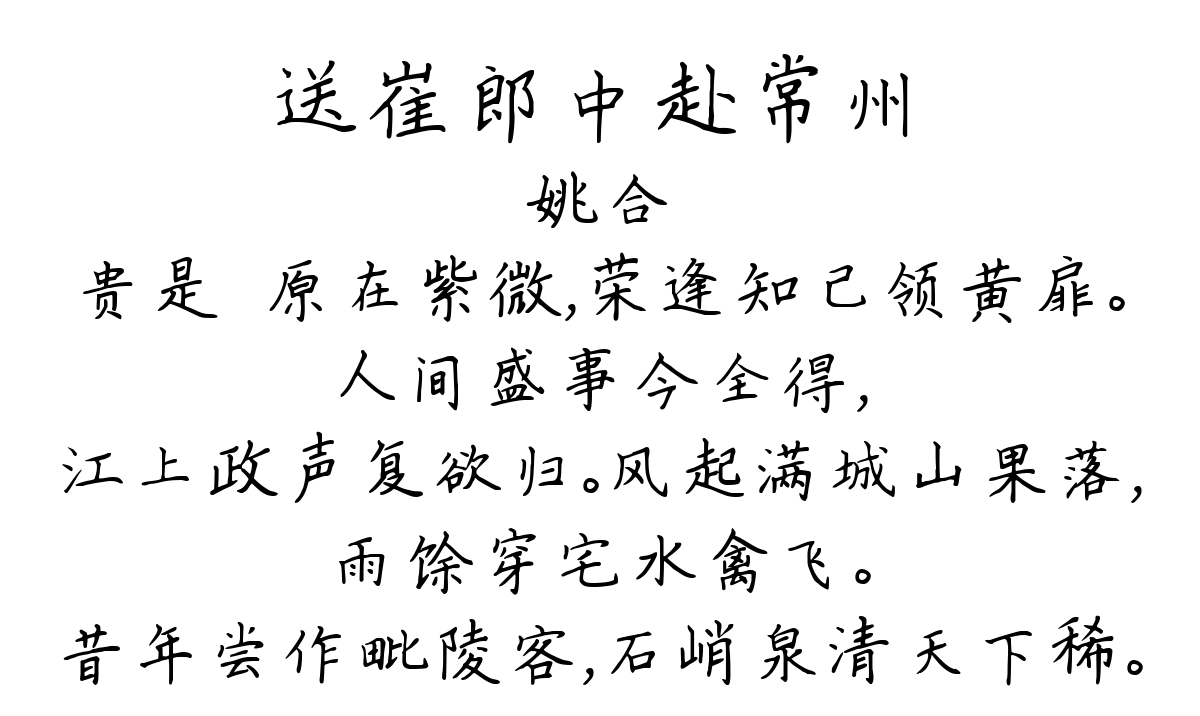 送崔郎中赴常州
姚合
贵是 原在紫微,荣逢知己领黄扉。
人间盛事今全得,
江上政声复欲归。风起满城山果落,
雨馀穿宅水禽飞。
昔年尝作毗陵客,石峭泉清天下稀。